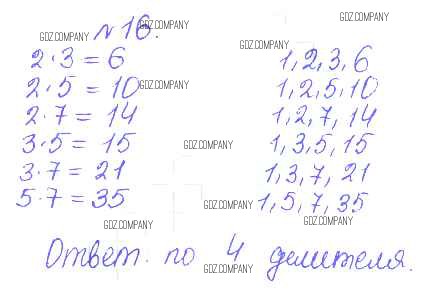 GDZ.COMPANY
GDZ.COMPANY № 16. GDZ.COMPANY
GDZ.COMPANY
2·3 = 6 1, 2, 3, 6
2·5 = 10 GDZ.COMPANY 1, 2, 5, 10
2·7 = 14 1, 2, 7, 14
3·5 = 15 GDZ.COMPANY 1, 3, 5, 15
3·7 = 21 1, 3, 7, 21
5·7 = 35 GDZ.COMPANY 1, 5, 7, 35
GDZ.COMPANY GDZ.COMPANY
Ответ. по 4 делителя.
GDZ.COMPANY